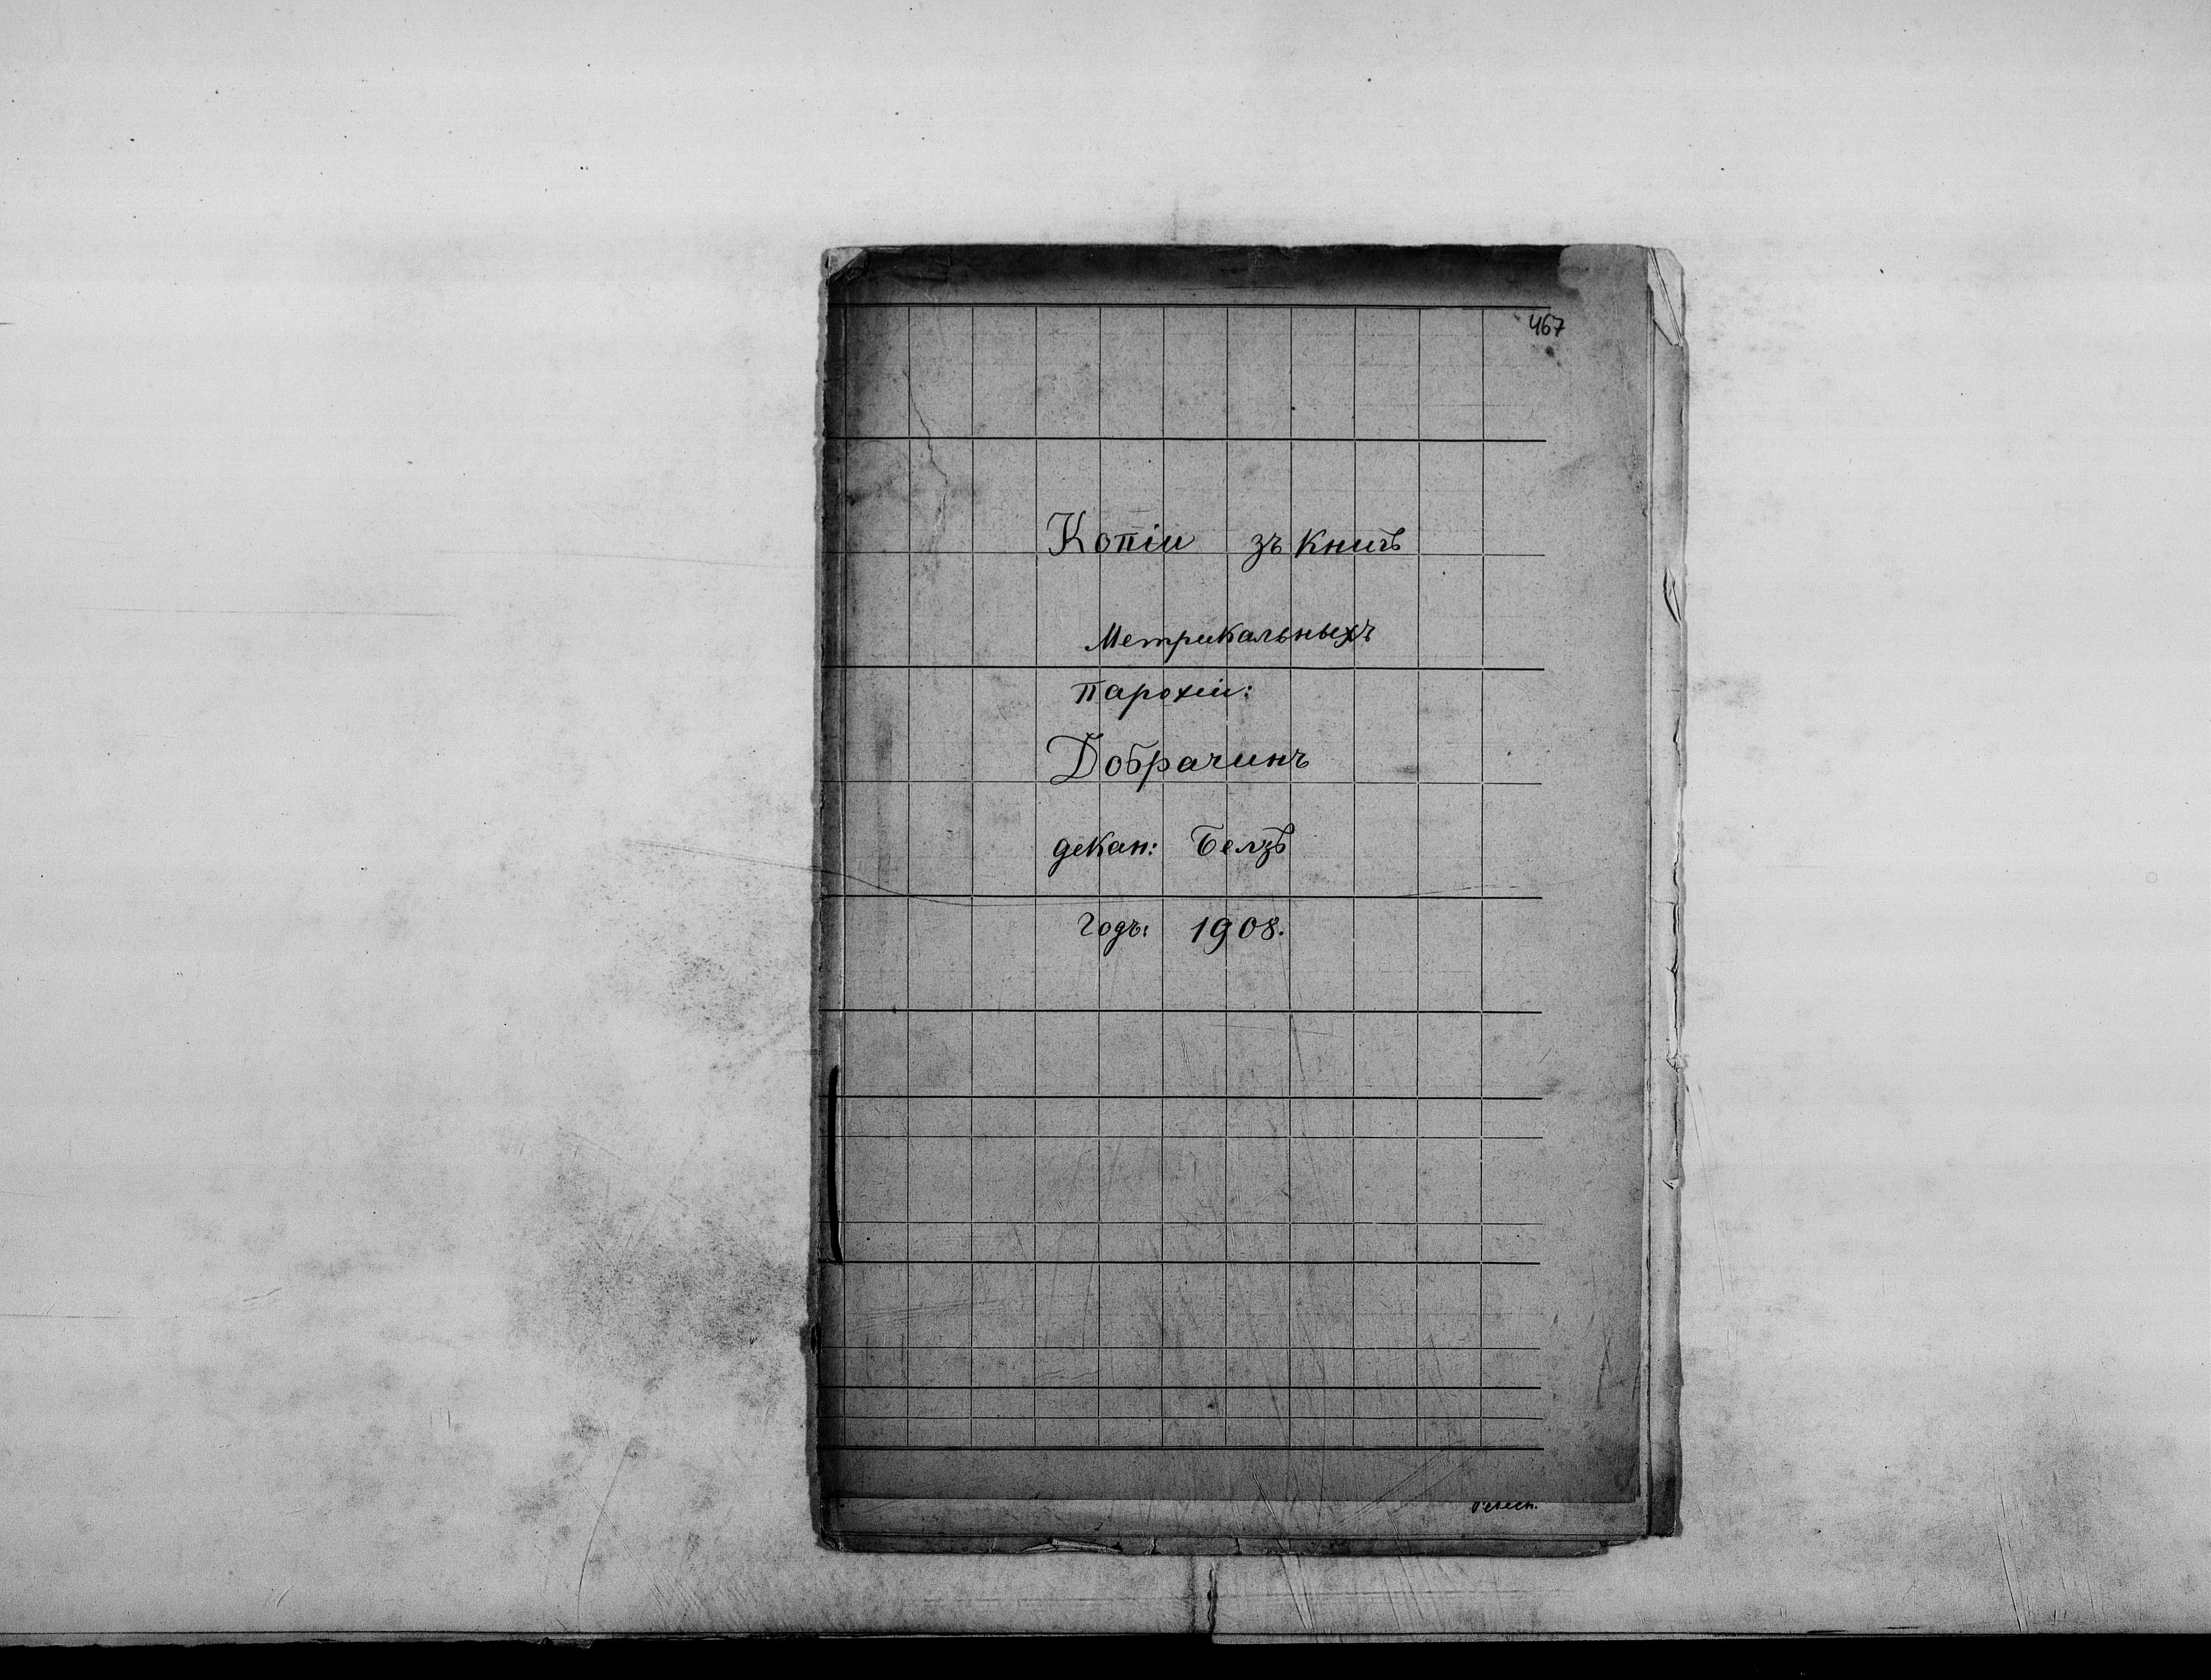 467
Копіи зъ Книгъ
Метрикальныхъ
парохіи:
Добрачинъ
декан: Белзъ
Годъ: 1908.